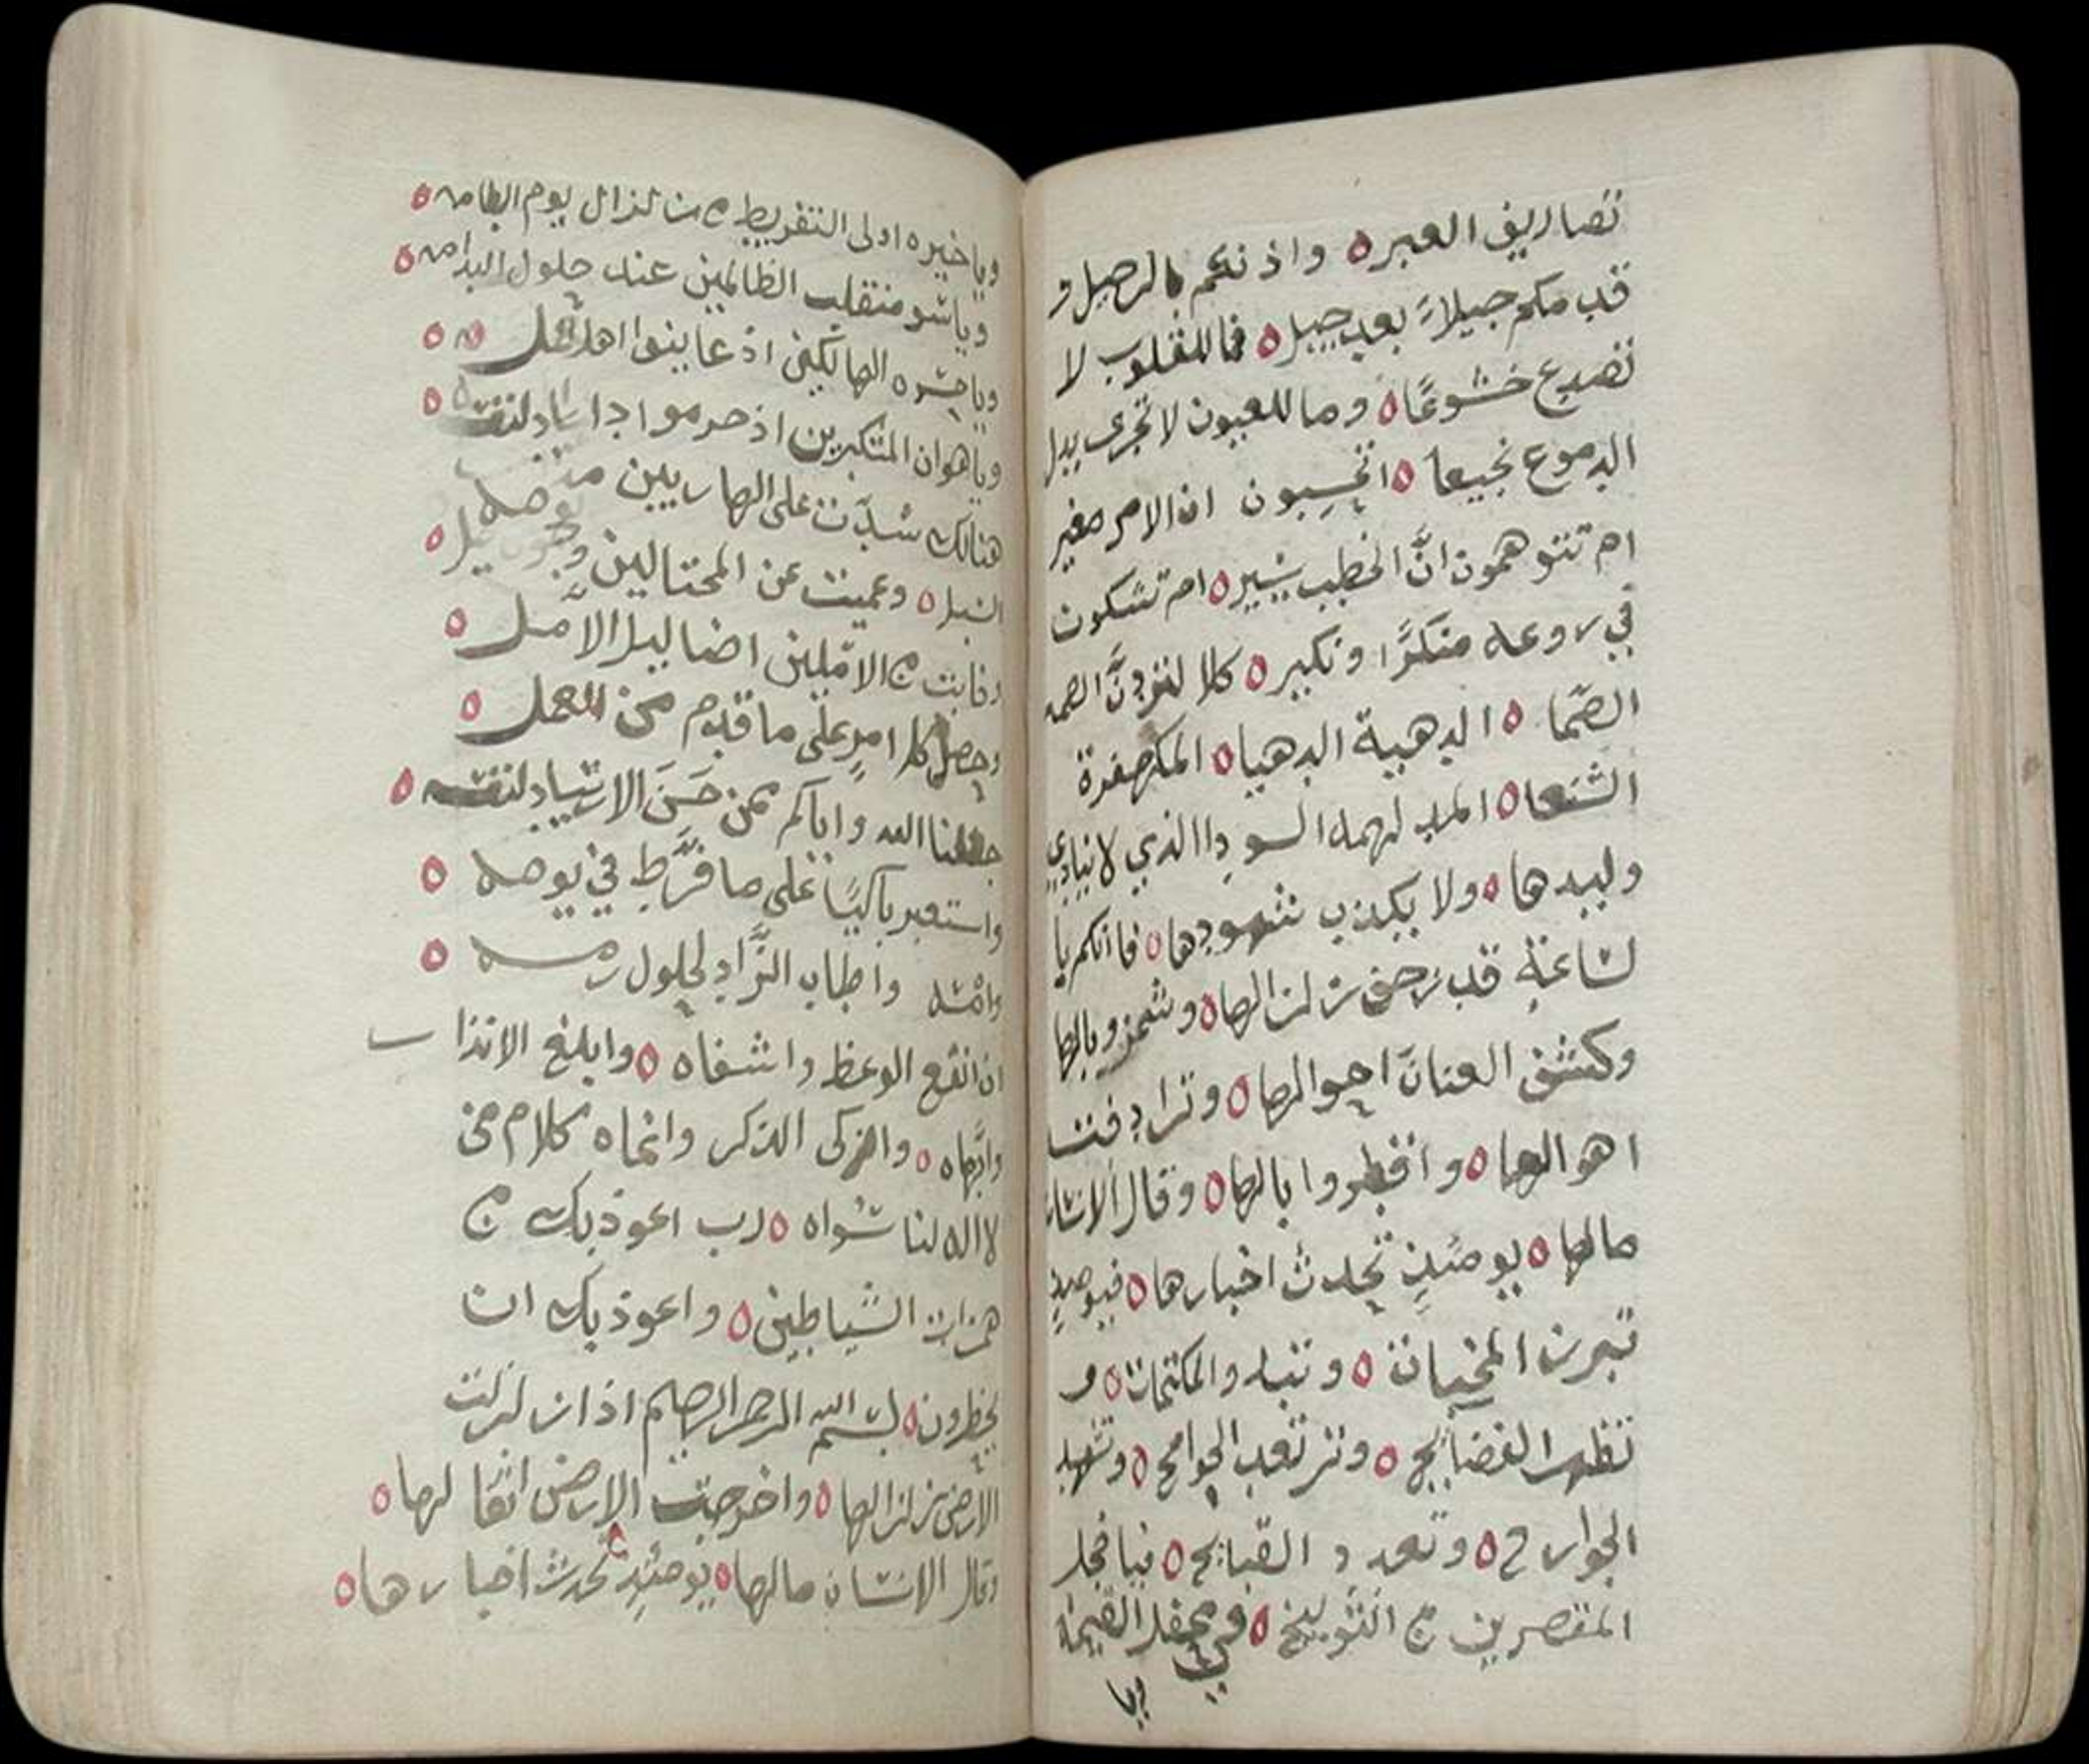 تصاريف العبره واذنكم بالرحيل و
قدمكم جيلاً بعد جيل فما للقلوب لا
تصدع خشوعًا وما للعيون لا تجرى بدل
الدموع نجيعا اتحسبون ان الامر صغير
ام تتوهمون انَّ الخطب يسير ام تشكون
في روعة منكرًا ونكير كلا لتردنَّ
الصّما الدهية الدهيا المكهفرة
الشنعا المدلهمه السودا الذي لا ينادي
وليدها ولا يكذب شهودها فانكم يا
لساعة قد زحف زلزالها وشمر وبالها
وكشف العنان احوالها وترادفت
اهوالها وافطروا بالها وقال الانسان
مالها يومئذٍ تحدث اخبارها فيومئذٍ
تبرز المخبيات وتبدو المكتمات و
تظهر الفضايح وترتعد الجوامح وتشهد
الجوارح وتعدد القبايح فيا خجل
المقصرين من التوبيخ في محفل القيمة
ويا
ويا خيره اولى التفريط من زلزال يوم الطامه
ويا سو منقلب الظالمين عند حلول الندامه
ويا حسره الهالكين اذ عاينوا اهل
ويا هوان المتكبرين اذ حرموا
هنالك سدّت على الهاربين
السبل وعميت عن المحتالين وجوه
وخابت من الاملين اضاليل الأمل
وحصل كل امرٍ على ما قدم من العمل
جعلنا الله واياكم ممن حَسَن الارتياد لنفسه
واستعبر باكيًا على ما فرَّط في يومه
وامسه واطاب الزَّاد لحلول رمسه
ان انفع الوعظ واشفاه وابلغ الانذار
وانهاه وازكى الذكر وانماه كلام من
لا اله لنا سواه رب اعوذ بك من
همزات الشياطين واعوذ بك ان
يحظرون بسم الله الرحمن الرحيم اذا زلزلت
الارض زلزالها واخرجت الارض اثقالها
وقال الانسان مالها يومئذٍ تحدث اخبارها